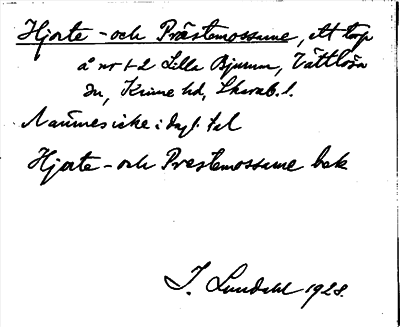 Hjorte- och Prästemossarne, ett torp
å nr 1-2 Lilla Bjurum, Vättlösa
sn, Kinne hd, Skarab. l.
Namnes icke i dagl. tal
Hjorte- och Prestemossarne bek
J. Lundahl 1928.